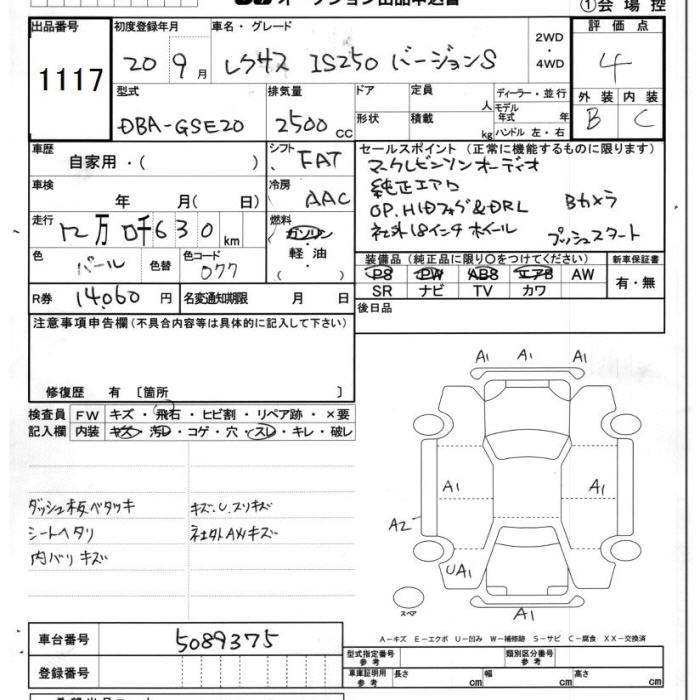 オークション出品申込書
①会場控
出品番号 1117
初度登録年月 20 9月
車名・グレード レクサス IS250 バージョンS
2WD・4WD
評価点 4
型式 DBA-GSE20
排気量 2500cc
ドア 形状
定員 人
積載 kg
ディーラー・並行
モデル年式 年
ハンドル 左・右
外装 B
内装 C
車歴 自家用・( )
シフト FAT
セールスポイント(正常に機能するものに限ります)
マークレビンソンオーディオ
純正エアロ
OP.HIDフォグ&DRL Bカメラ
社外18インチホイール プッシュスタート
車検 年 月( 日)
冷房 AAC
走行 12万0千630km
燃料 ガソリン・軽油・( )
色 パール
色替
カラーコード 077
装備品(純正品に限り○をつけてください)
PS PW ABS エアB AW
SR ナビ TV カワ
新車保証書 有・無
R券 14,060円
名変通知期限 月 日
後日品
注意事項申告欄(不具合内容等は具体的に記入して下さい)
修復歴 有 〔箇所 〕
検査員記入欄
FW キズ・飛石・ヒビ割・リペア跡・×要
内装 キズ・汚レ・コゲ・穴・スレ・キレ・破レ
ダッシュ板ベタツキ
シートヘタリ
内バリキズ
キズ.U.スリキズ
社外AWキズ
A1 A1 A1
A1 A1
A2
UA1
A1
スペア
A-キズ E-エクボ U-凹み W-補修跡 S-サビ C-腐食 XX-交換済
車台番号 5089375
登録番号
型式指定番号 参考
類別区分番号 参考
車庫証明用 参考 長さ cm 幅 cm 高さ cm